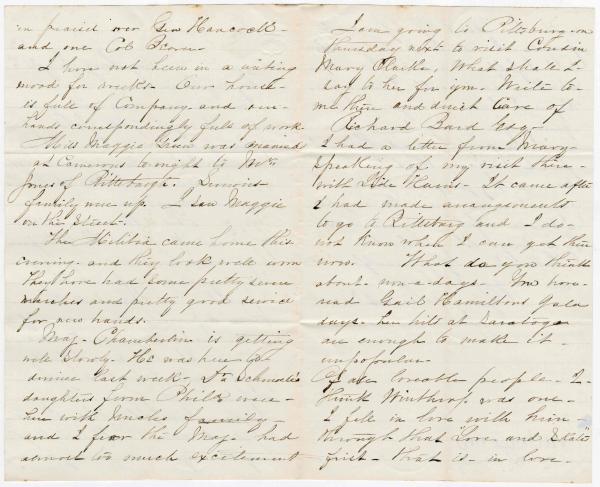 in praised over Gen Hancock -
and one Col Stone -
I have not been in a writing
mood for weeks - Our house
is full of Company - and our
hands correspondingly full of work
Miss Maggie Green was married
at Camerons tonight to Mr.
Jones of Pittsburgh.
family were up. I saw Maggie
on the Street -
The Militia came home this
evening - and they look well worn
They have had some pretty severe
marches and pretty good service
for new hands.
Maj. Chamberlin is getting
well slowly - He was here to
dinner last week - Dr Schmucker's
daughters from Phila were
here with family -
and I fear the Maj - had
almost too much excitement
I am going to Pittsburg - on
Thursday next - to visit Cousin
Mary Clarke, What shall I
say to her for you - Write to
me there and direct Care of
Richard Bard Esq -
I had a letter from Mary -
speaking of my visit there -
with Lide Harris - It came after
I had made arrangements
to go to Pittsburg and I do -
not know when I can get there
now. What do you think
about - now-a-days - You have
read Gail Hamiltons Gala
days - her hits at Saratoga
are enough to make it -
unpopular -
Of all loveable people - I -
think Winthrop was one -
I fell in love with him -
through that "Love and Skates"
first - that is - in love -